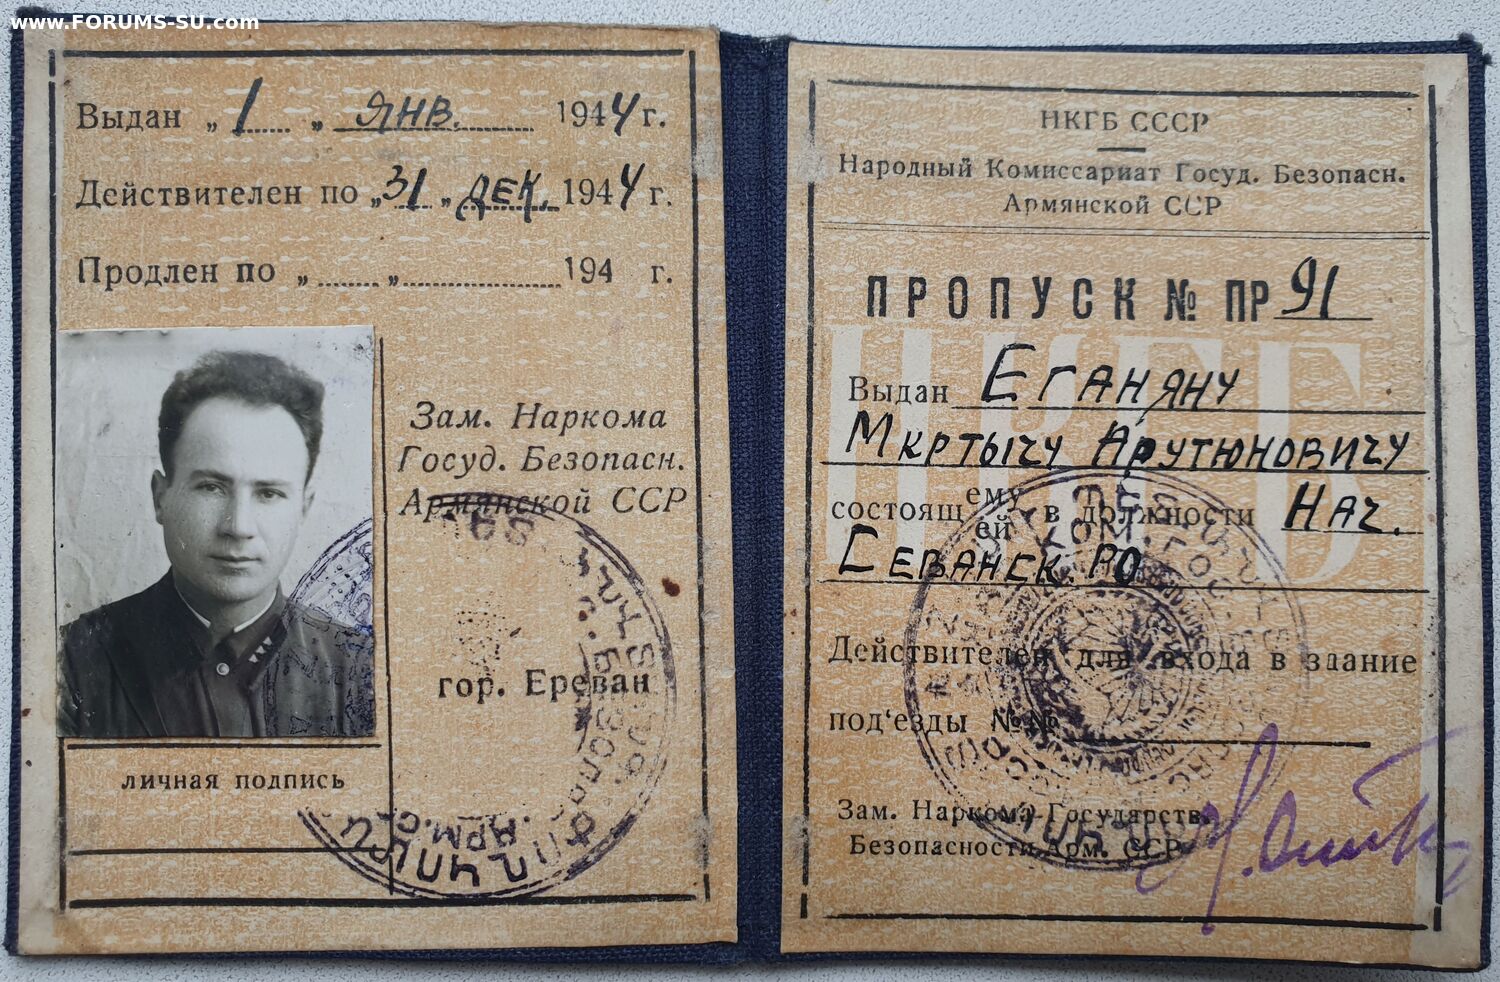 www.FORUMS-SU.com
Выдан „1„ янв. 1944 г.
Действителен по „31„ дек. 1944 г.
Продлен по „ „ 194 г.
Зам. Наркома
Госуд. Безопасн.
Армянской ССР
гор. Ереван
личная подпись
АРМ.
НКГБ СССР
Народный Комиссариат Госуд. Безопасн.
Армянской ССР
ПРОПУСК № ПР 91
НКГБ
Выдан Еганяну
Мкртычу Арутюновичу
состоящ ему
ей в должности Нач.
Севанск. РО
Действителен для входа в здание
под'езды №№
Зам. Наркома Государств.
Безопасности Арм. ССР